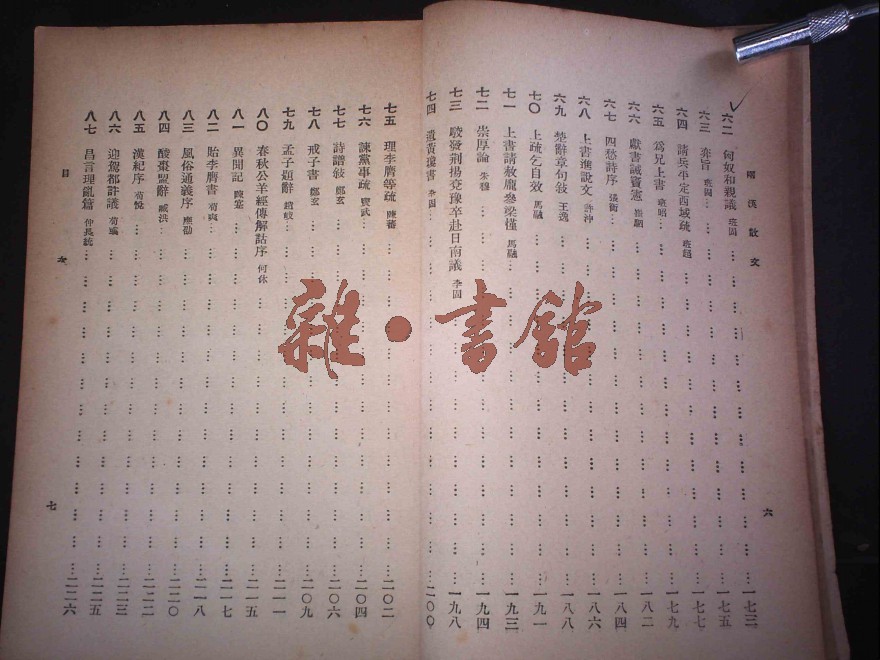 兩漢散文
六
六二 匈奴和親議 班固 … 一七三
六三 弈旨 班固 … 一七五
六四 請兵平定西域疏 班超 … 一七七
六五 爲兄上書 班昭 … 一七九
六六 獻書誡竇憲 崔駰 … 一八二
六七 四愁詩序 張衡 … 一八四
六八 上書進說文 許沖 … 一八六
六九 楚辭章句敍 王逸 … 一八八
七〇 上疏乞自效 馬融 … 一九一
七一 上書請赦龐參梁慬 馬融 … 一九三
七二 崇厚論 朱穆 … 一九四
七三 駮發荆揚兗豫卒赴日南議 李固 … 一九八
七四 遺黃瓊書 李固 … 二〇〇
七五 理李膺等疏 陳蕃 … 二〇二
七六 諫黨事疏 竇武 … 二〇四
七七 詩譜敍 鄭玄 … 二〇六
七八 戒子書 鄭玄 … 二〇九
七九 孟子題辭 趙岐 … 二一一
八〇 春秋公羊經傳解詁序 何休 … 二一五
八一 異聞記 陳寔 … 二一七
八二 貽李膺書 荀爽 … 二一八
八三 風俗通義序 應劭 … 二二〇
八四 酸棗盟辭 臧洪 … 二二二
八五 漢紀序 荀悅 … 二二三
八六 迎駕都許議 荀彧 … 二二五
八七 昌言理亂篇 仲長統 … 二二六
目次
七
雜·書館